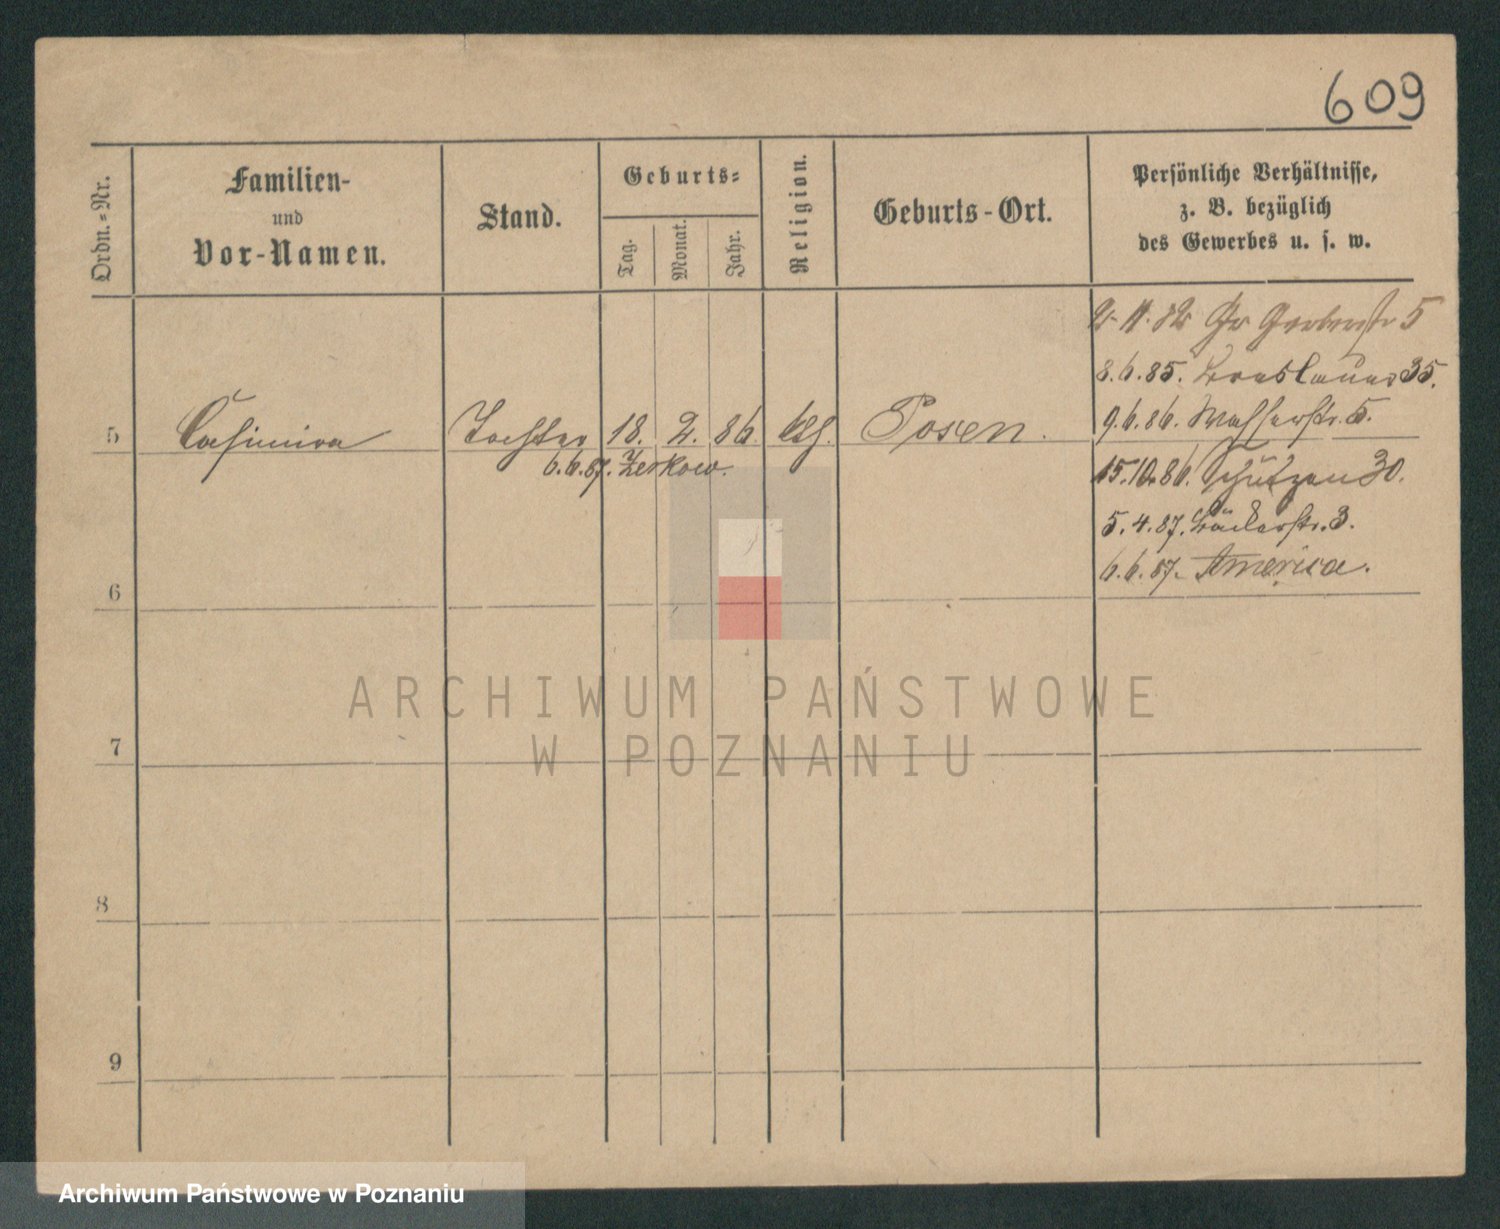 609
Ordn.=Nr.
Familien-
und
Vor-Namen.
Stand.
Geburts=
Tag.
Monat.
Jahr.
Religion.
Geburts-Ort.
Persönliche Verhältnisse,
z. B. bezüglich
des Gewerbes u. s. w.
11. Gr Gerberstr 5
8.6.85. Breslauer 35.
9.6.86. Wasserstr. 5.
5 Casimira Tochter 18. 2. 86 kth. Posen.
6.6.87. Zerkow.
15.10.86. Schützen 30.
5.4.87. Bäckerstr. 3.
6.6.87. America.
6
7
8
9
ARCHIWUM PAŃSTWOWE
W POZNANIU
Archiwum Państwowe w Poznaniu